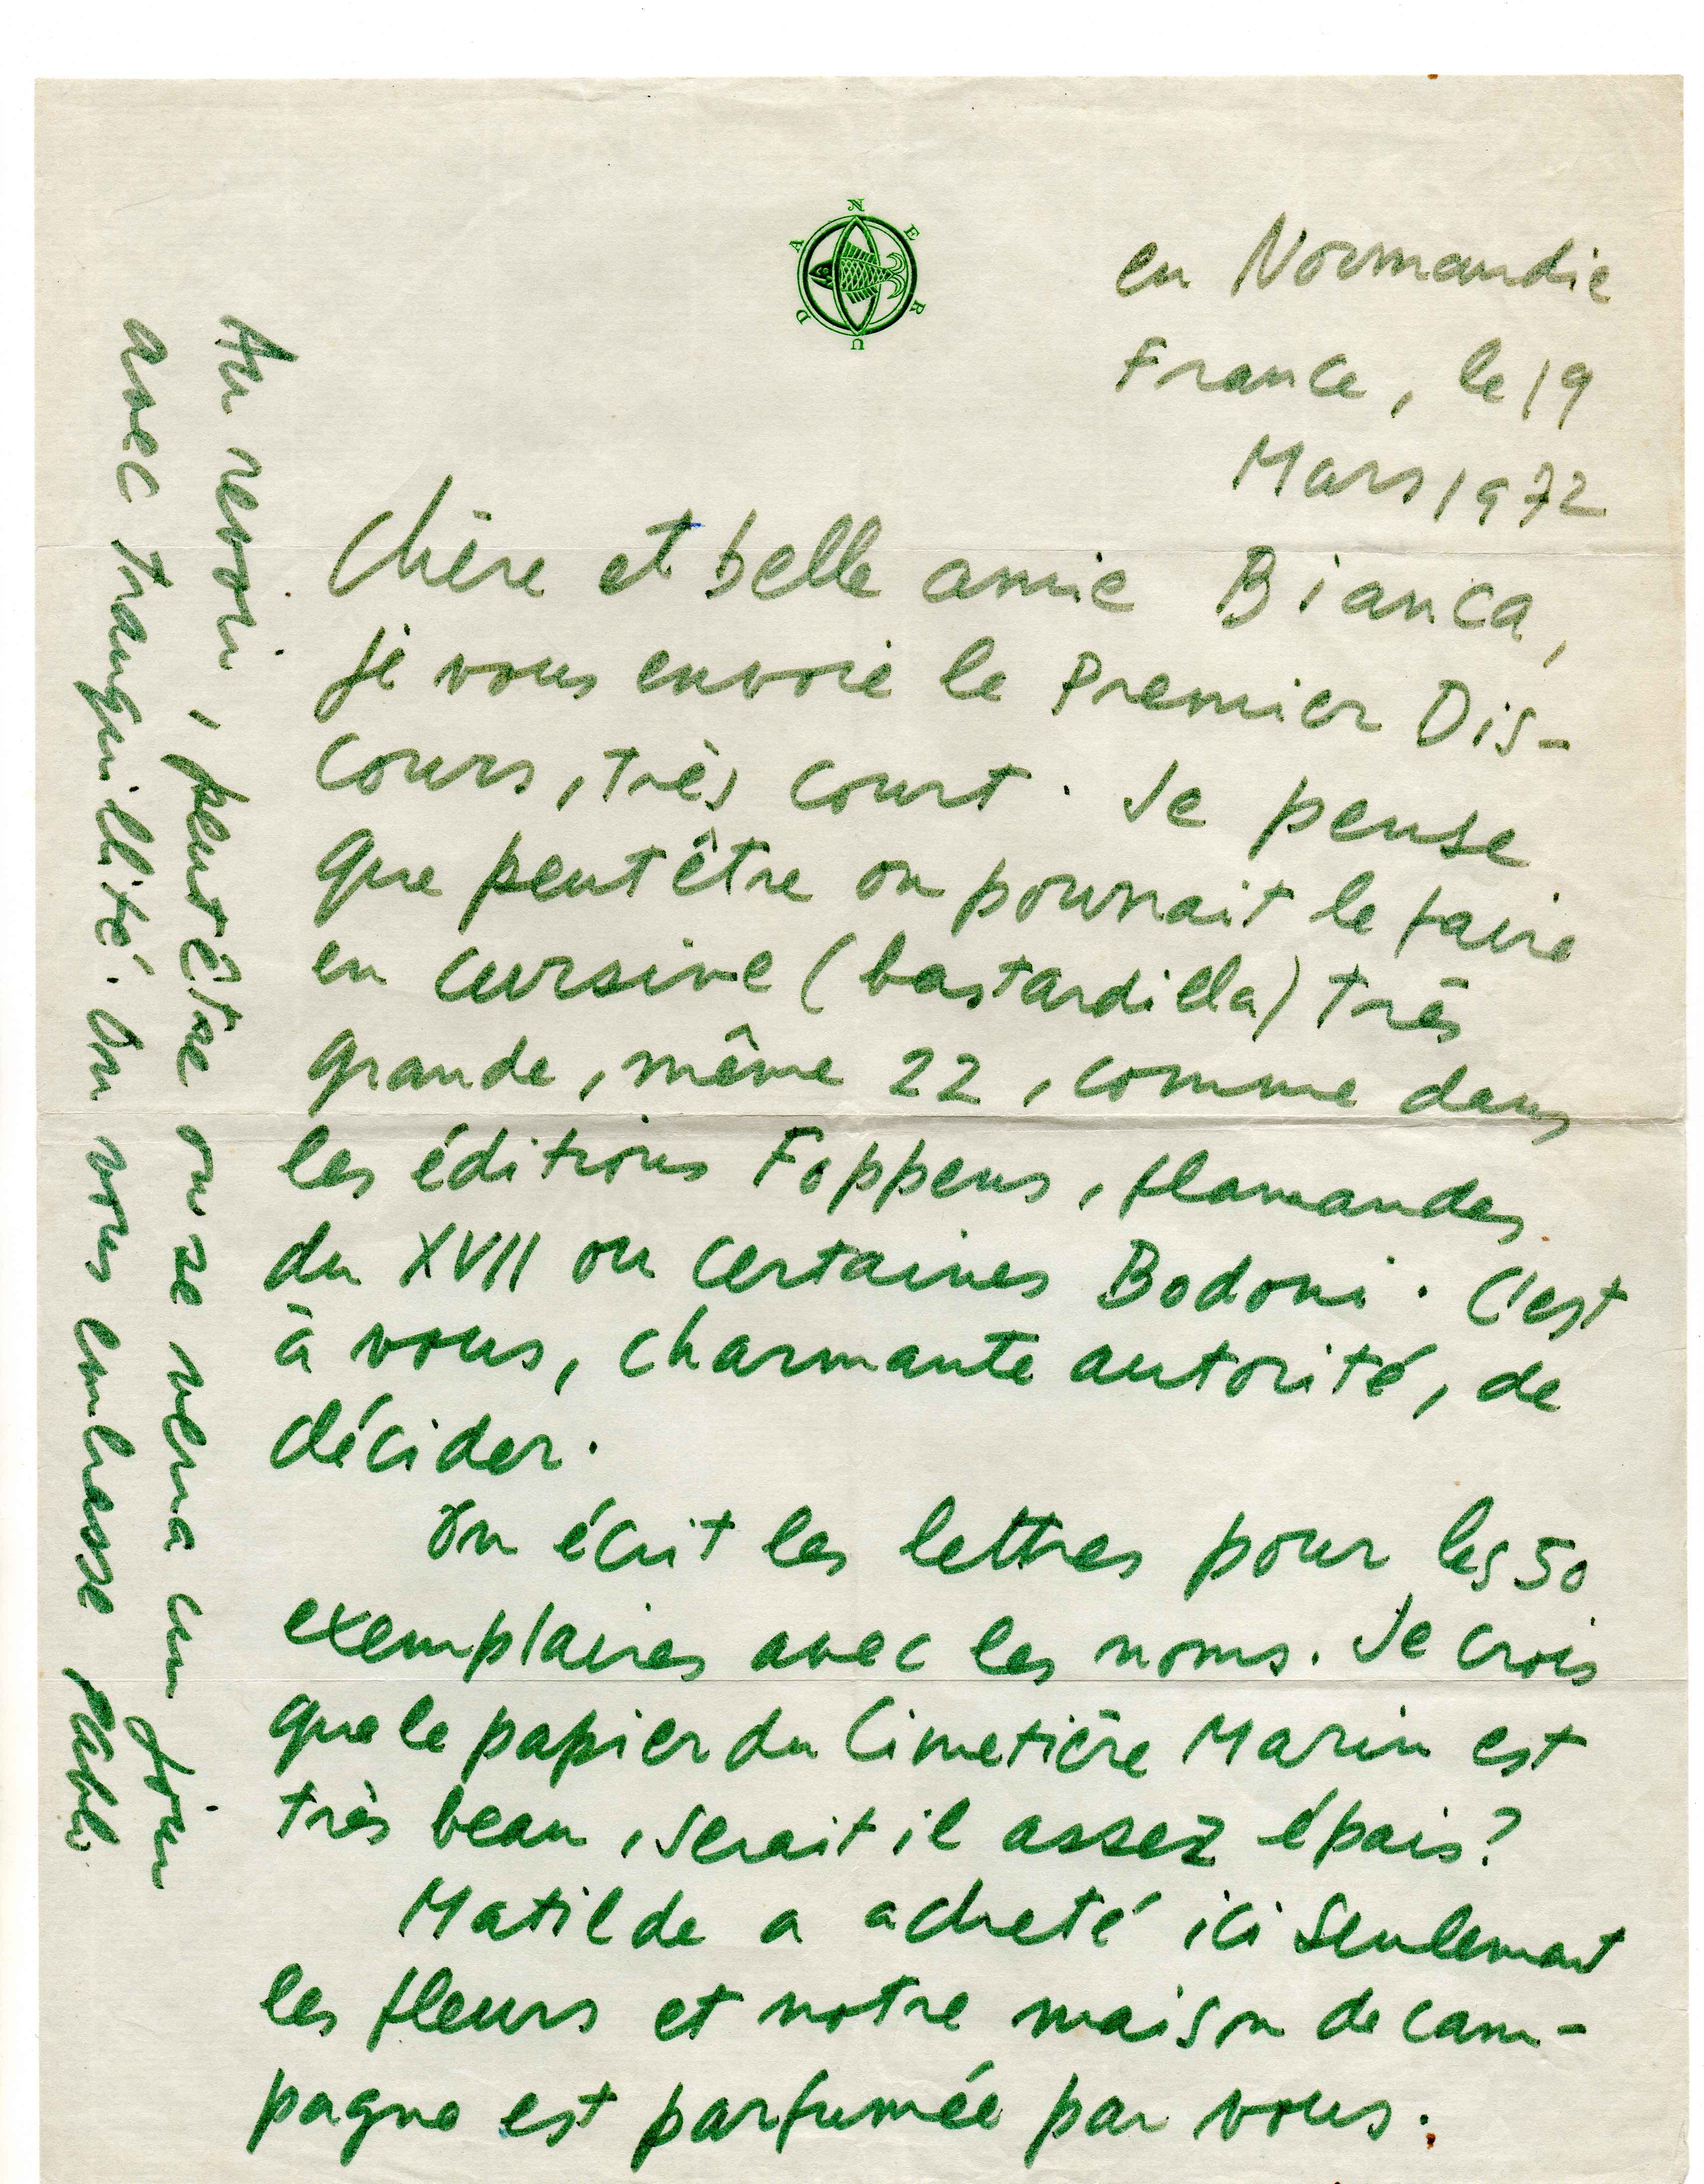 NERUDA
en Normandie
France, le 19
Mars 1972
Chère et belle amie Bianca,
je vous envoie le Premier Dis-
cours, très court. Je pense
que peut être on pourrait le faire
en cursive (bastardilla) très
grande, même 22, comme dans
les éditions Foppens, flamandes
du XVII ou certaines Bodoni. C'est
à vous, charmante autorité, de
décider.
On écrit les lettres pour les 50
exemplaires avec les noms. Je crois
que le papier du Cimetière Marin est
très beau, serait il assez épais?
Matilde a acheté ici seulemant
les fleurs et notre maison de cam-
pagne est parfumée par vous.
Au revoir, peut être on se verra un jour
avec tranquillité. On vous embrasse Pablo